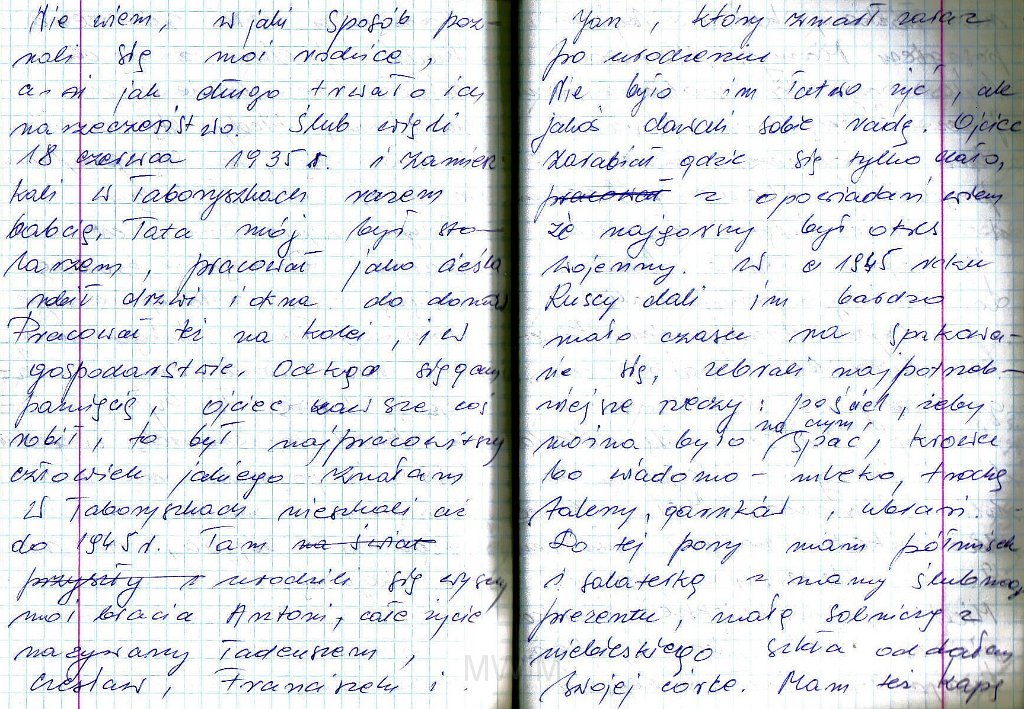 Nie wiem, w jaki sposób poz-
nali się moi rodzice,
ani jak długo trwało ich
narzeczeństwo. Ślub wzięli
18 czerwca 1935 r. i zamiesz-
kali w Taboryszkach razem
babcią. Tata mój był sto-
larzem, pracował jako cieśla
robił drzwi i okna do domów
Pracował też na kolei, i w
gospodarstwie. Odkąd sięgam
pamięcią, ojciec zawsze coś
robił, to był najpracowitszy
człowiek jakiego znałam
W Taboryszkach mieszkali aż
do 1945 r. Tam na świat
przyszły urodzili się wszyscy
moi bracia Antoni, całe życie
nazywany Tadeuszem,
Czesław, Franciszek i
Jan, który zmarł zaraz
po urodzeniu
Nie było im łatwo żyć, ale
jakoś dawali sobie radę. Ojciec
zarabiał gdzie się tylko dało,
pracował z opowiadań wiem
że najgorszy był okres
wojenny. W 1945 roku
Ruscy dali im bardzo
mało czasu na spakowa-
nie się, zebrali najpotrzeb-
niejsze rzeczy: pościel, żeby
na czym
można było spać, krowę
bo wiadomo - mleko, trochę
talerzy, garnków, ubrań.
Do tej pory mam półmisek
i salaterkę z mamy ślubnego
prezentu, małą solniczkę z
niebieskiego szkła oddałam
swojej córce. Mam też kapę
MWM